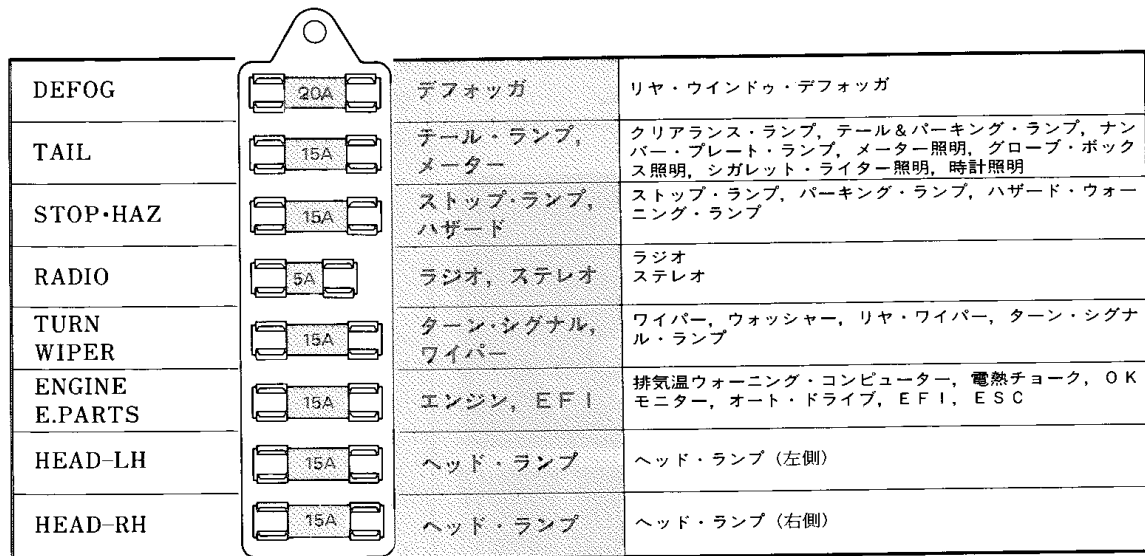 DEFOG
20A
デフォッガ
リヤ・ウインドゥ・デフォッガ
TAIL
15A
テール・ランプ,
メーター
クリアランス・ランプ, テール&パーキング・ランプ, ナン
バー・プレート・ランプ, メーター照明, グローブ・ボック
ス照明, シガレット・ライター照明, 時計照明
STOP・HAZ
15A
ストップ・ランプ,
ハザード
ストップ・ランプ, パーキング・ランプ, ハザード・ウォー
ニング・ランプ
RADIO
5A
ラジオ, ステレオ
ラジオ
ステレオ
TURN
WIPER
15A
ターン・シグナル,
ワイパー
ワイパー, ウォッシャー, リヤ・ワイパー, ターン・シグナ
ル・ランプ
ENGINE
E.PARTS
15A
エンジン, EFI
排気温ウォーニング・コンピューター, 電熱チョーク, OK
モニター, オート・ドライブ, EFI, ESC
HEAD-LH
15A
ヘッド・ランプ
ヘッド・ランプ (左側)
HEAD-RH
15A
ヘッド・ランプ
ヘッド・ランプ (右側)